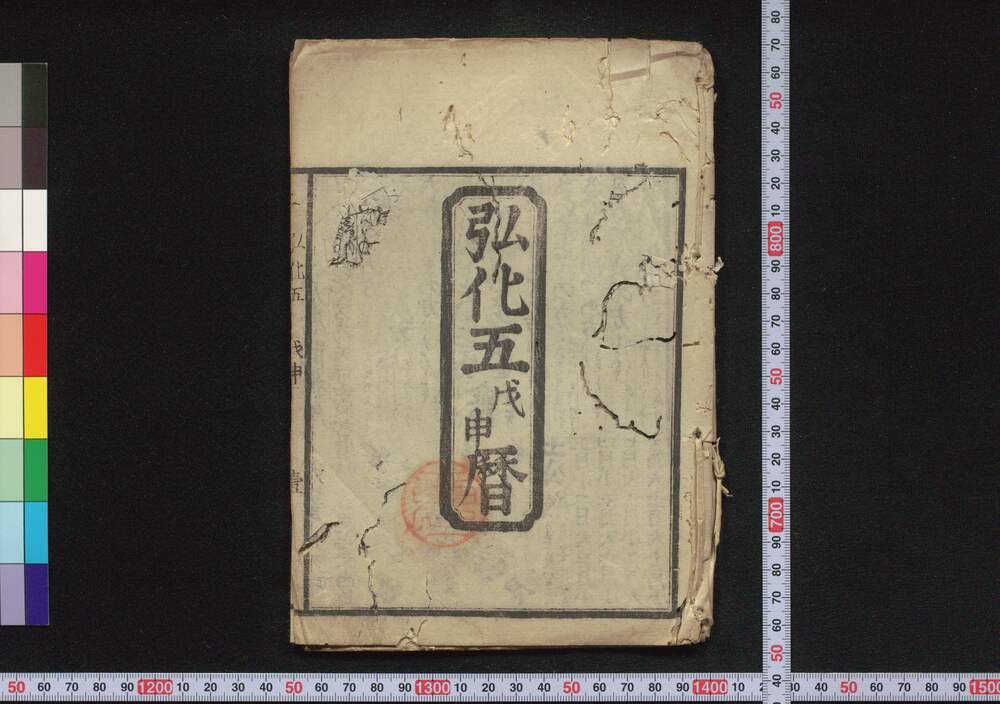 弘化五戊申暦
弘化五 戊申 壹
80
70
60
50
40
30
20
10
800
90
80
70
60
50
40
30
20
10
700
90
80
70
60
50
40
50 60 70 80 90 1200 10 20 30 40 50 60 70 80 90 1300 10 20 30 40 50 60 70 80 90 1400 10 30 40 50 60 70 80 90 1500